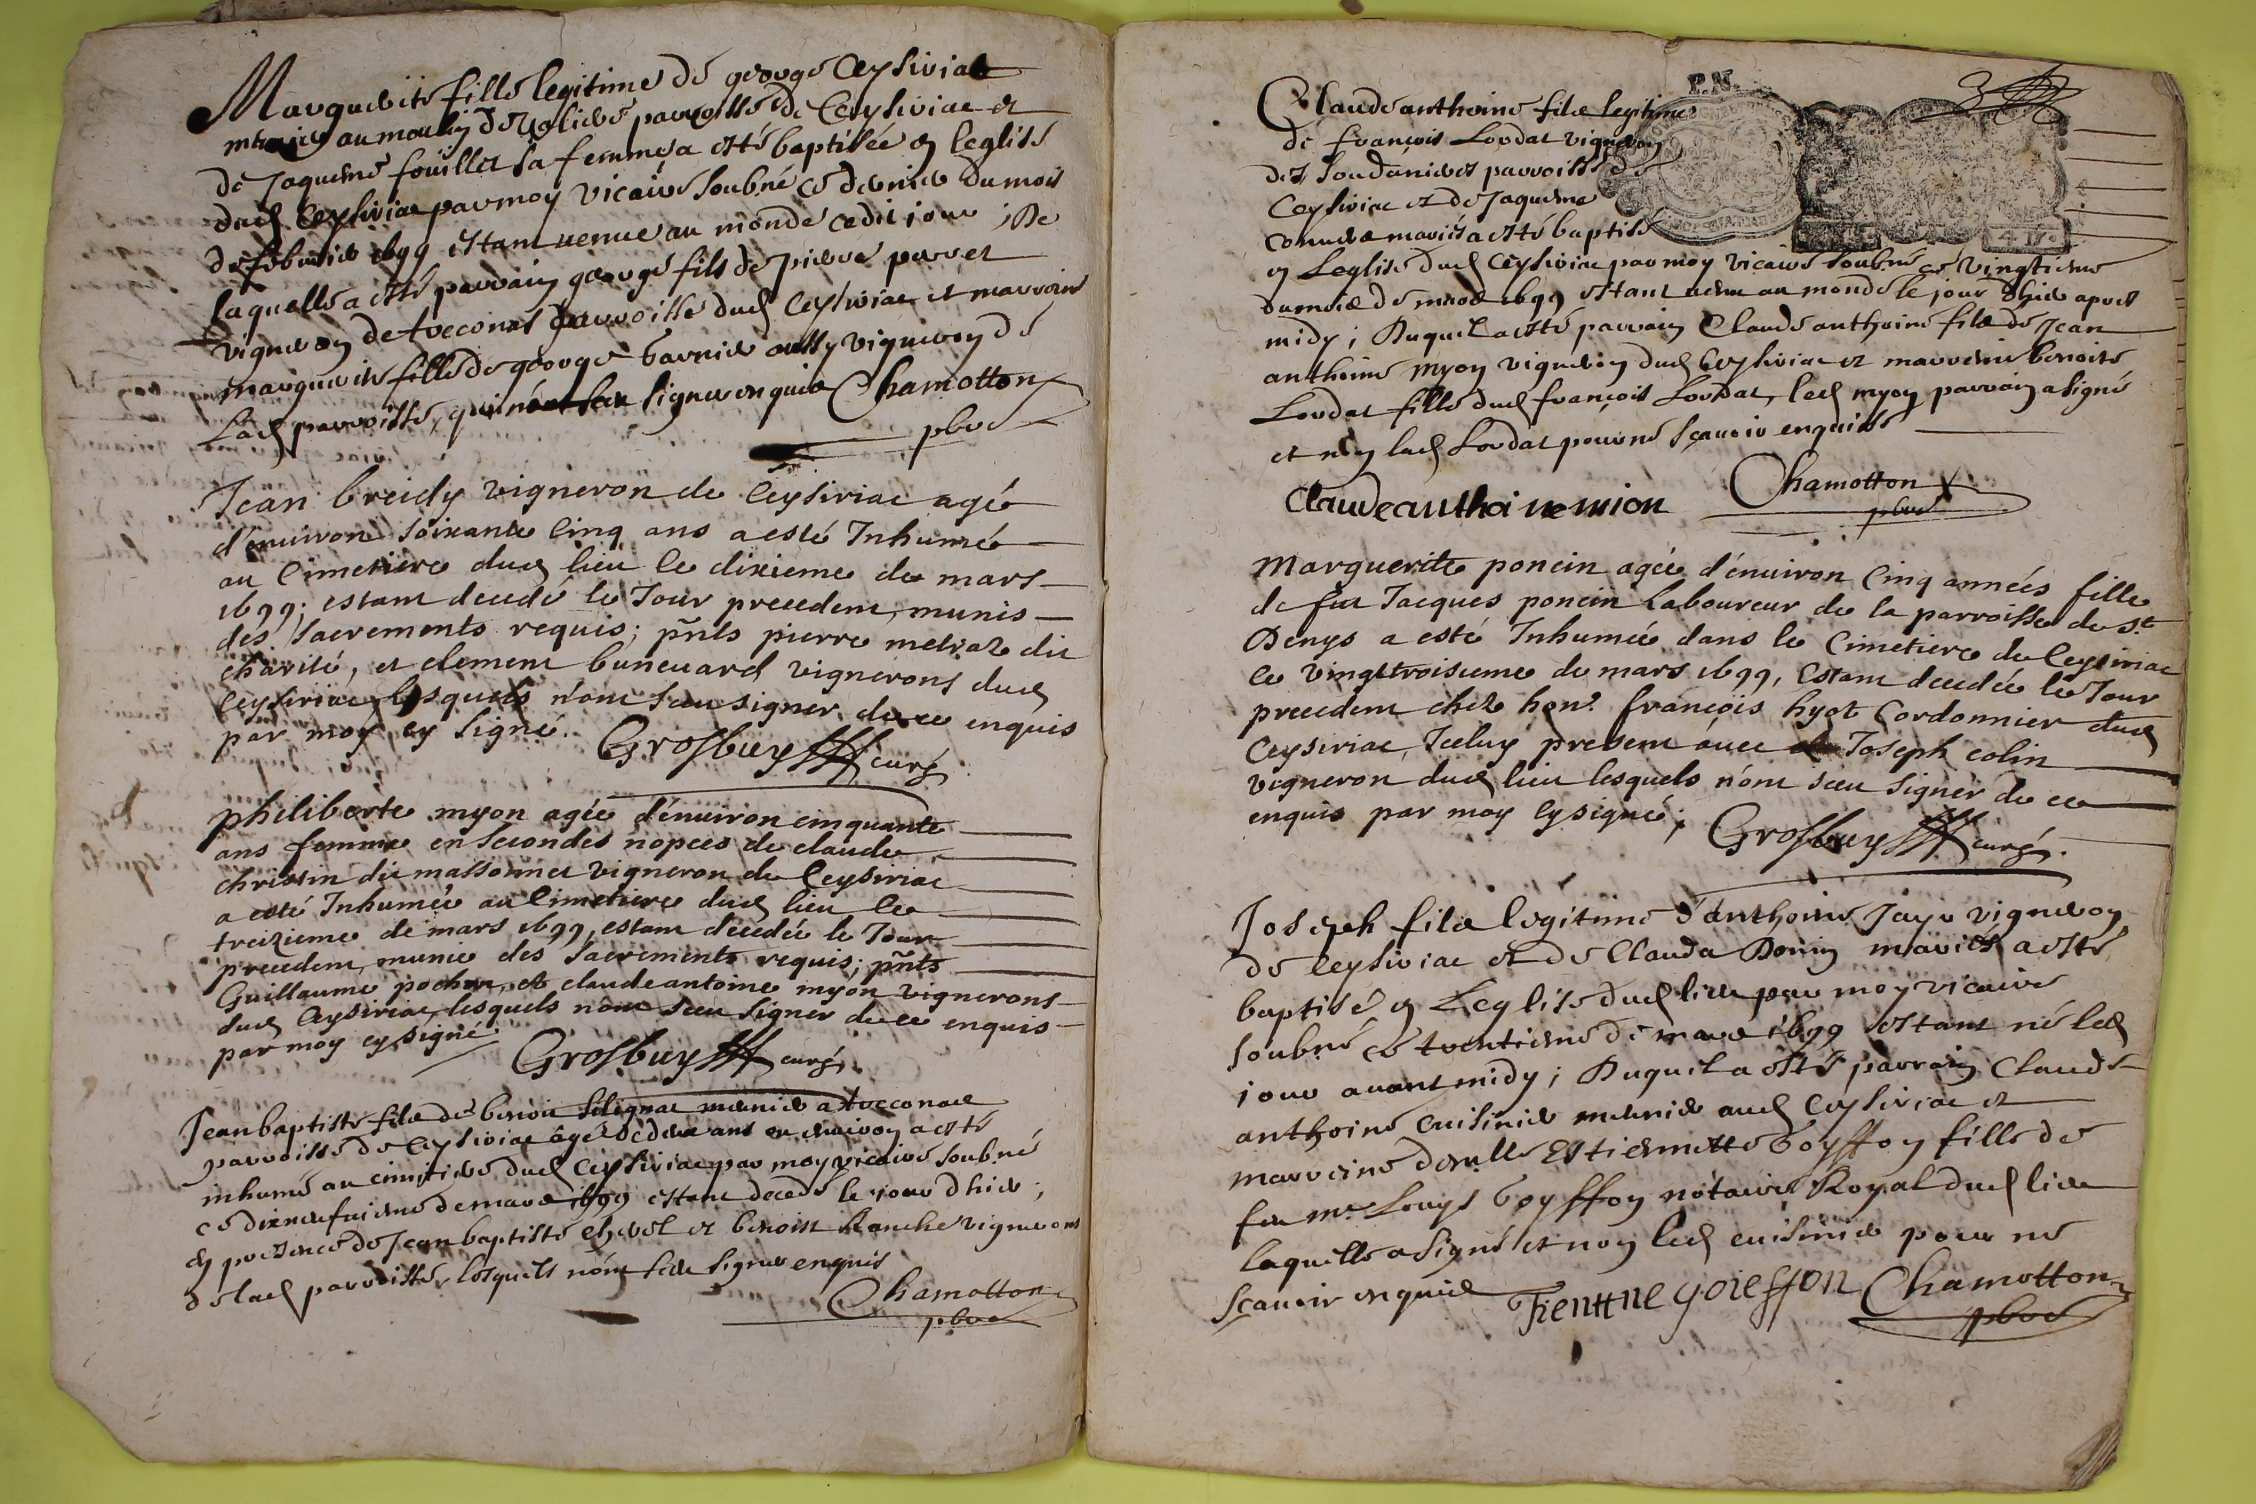 Marguerite fille legitime de george Ceysiriat
au moulin de parroisse de Ceysiriac et
de Jaqueme fouillet sa femme a esté baptisée en leglise
dud Ceysiriac par moy vicaire soubné ce dernier du mois
de febvrier 1699 estant venue au monde cedit jour ; De
laquelle a esté parrain george fils de pierre perret
vigneron de treconas parroisse dud Ceysiriac et marraine
marguerite fille de george garnier aussy vigneron de
lad parroisse, qui n'ont sceu signer enquis Chamotton
pbre
Jean breidy vigneron de Ceysiriac agé
d'enuiron soixante Cinq ans a esté Inhumé
au Cimetiere dud lieu le dixieme de mars
1699; estant decedé le Jour precedent, munis
des sacrements requis; pñts pierre metraz dit
charité, et clement buneuard vignerons dud
Ceysiriac, lesquels n'ont sceu signer de ce enquis
par moy cy signé. Grosbuy curé
philiberte myon agée d'enuiron cinquante
ans femme en secondes nopces de claude
chrissin dit massonnet vigneron de Ceysiriac
a esté Inhumée au Cimetiere dud lieu le
treizieme de mars 1699, estant decedée le Jour
precedent, munie des sacrements requis; pñts
Guillaume pochon, et claude antoine myon vignerons
dud Ceysiriac, lesquels n'ont sceu signer de ce enquis
par moy cy signé. Grosbuy curé
Jean baptiste fils de benoit Selignat meunier a treconas
parroisse de Ceysiriac âgé de deux ans ou enuiron a esté
inhumé au cimitiere dud Ceysiriac par moy vicaire soubné
ce dixneufuieme de mars 1699 estant decedé le jour d'hier,
en presence de Jean baptiste chevel et benoist Ranche vignerons
de lad parroisse, lesquels n'ont sceu signer enquis
Chamotton
pbre
P.N.
Claude anthoine fils legitime
de françois Lordat vigneron
des Soudanieres parroisse de
Ceysiriac et de Jaqueme
mariés a esté baptisé
en Leglise dud Ceysiriac par moy vicaire soubné ce vingtieme
du mois de mars 1699 estant venu au monde le jour d'hier apres
midy ; Duquel a esté parrain Claude anthoine fils de Jean
anthoine myon vigneron dud Ceysiriac et marreine benoite
Lordat fille dud françois Lordat, led myon parrain a signé
et non lad Lordat pour ne sçauoir enquise
Claudeanthoinemion Chamotton
pbre
Marguerite poncin agée d'enuiron Cinq années fille
de feu Jacques poncin laboureur de la parroisse de st
Denys a esté Inhumée dans le Cimetiere de Ceysiriac
le vingttroisieme de mars 1699, Estant decedée le Jour
precedent chez honr françois hyot Cordonnier dud
Ceysiriac, Iceluy present auec Joseph colin
vigneron dud lieu lesquels n'ont sceu signer de ce
enquis par moy cysigné; Grosbuy curé.
Joseph fils legitime d'anthoine Jayr vigneron
de Ceysiriac et de Clauda Donin mariés a esté
baptisé en Leglise dud lieu par moy vicaire
soubné ce trentieme de mars 1699 estant né led
jour auant midy ; Duquel a esté parrain Claude
anthoine cuisinier meunier aud Ceysiriac et
marreine demlle Estiennette Goyffon fille de
feu mre Louys Goyffon notaire Royal dud lieu
laquelle a signé et non led cuisinier pour ne
sçauoir enquis Tientne goieffon Chamotton
pbre